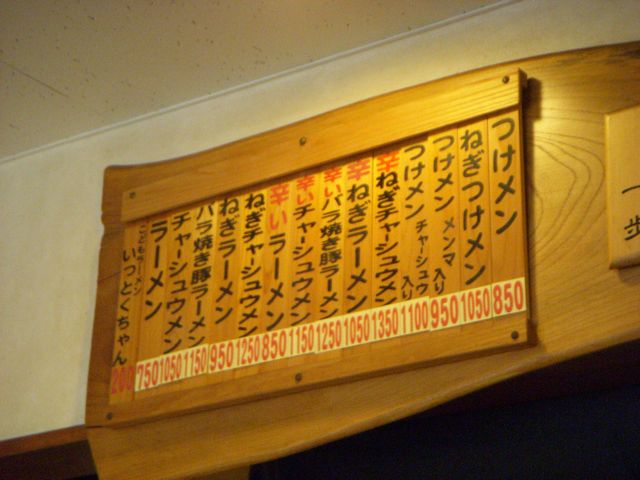 つけメン 850
ねぎつけメン 1050
つけメン メンマ入り 950
つけメン チャーシュウ入り 1100
辛ねぎチャーシュウメン 1350
辛ねぎラーメン 1050
辛いバラ焼き豚ラーメン 1250
辛いチャーシュウメン 1150
辛いラーメン 850
ねぎチャーシュウメン 1250
ねぎラーメン 950
バラ焼き豚ラーメン 1150
チャーシュウメン 1050
ラーメン 750
こどもラーメン いっとくちゃん 200
一歩